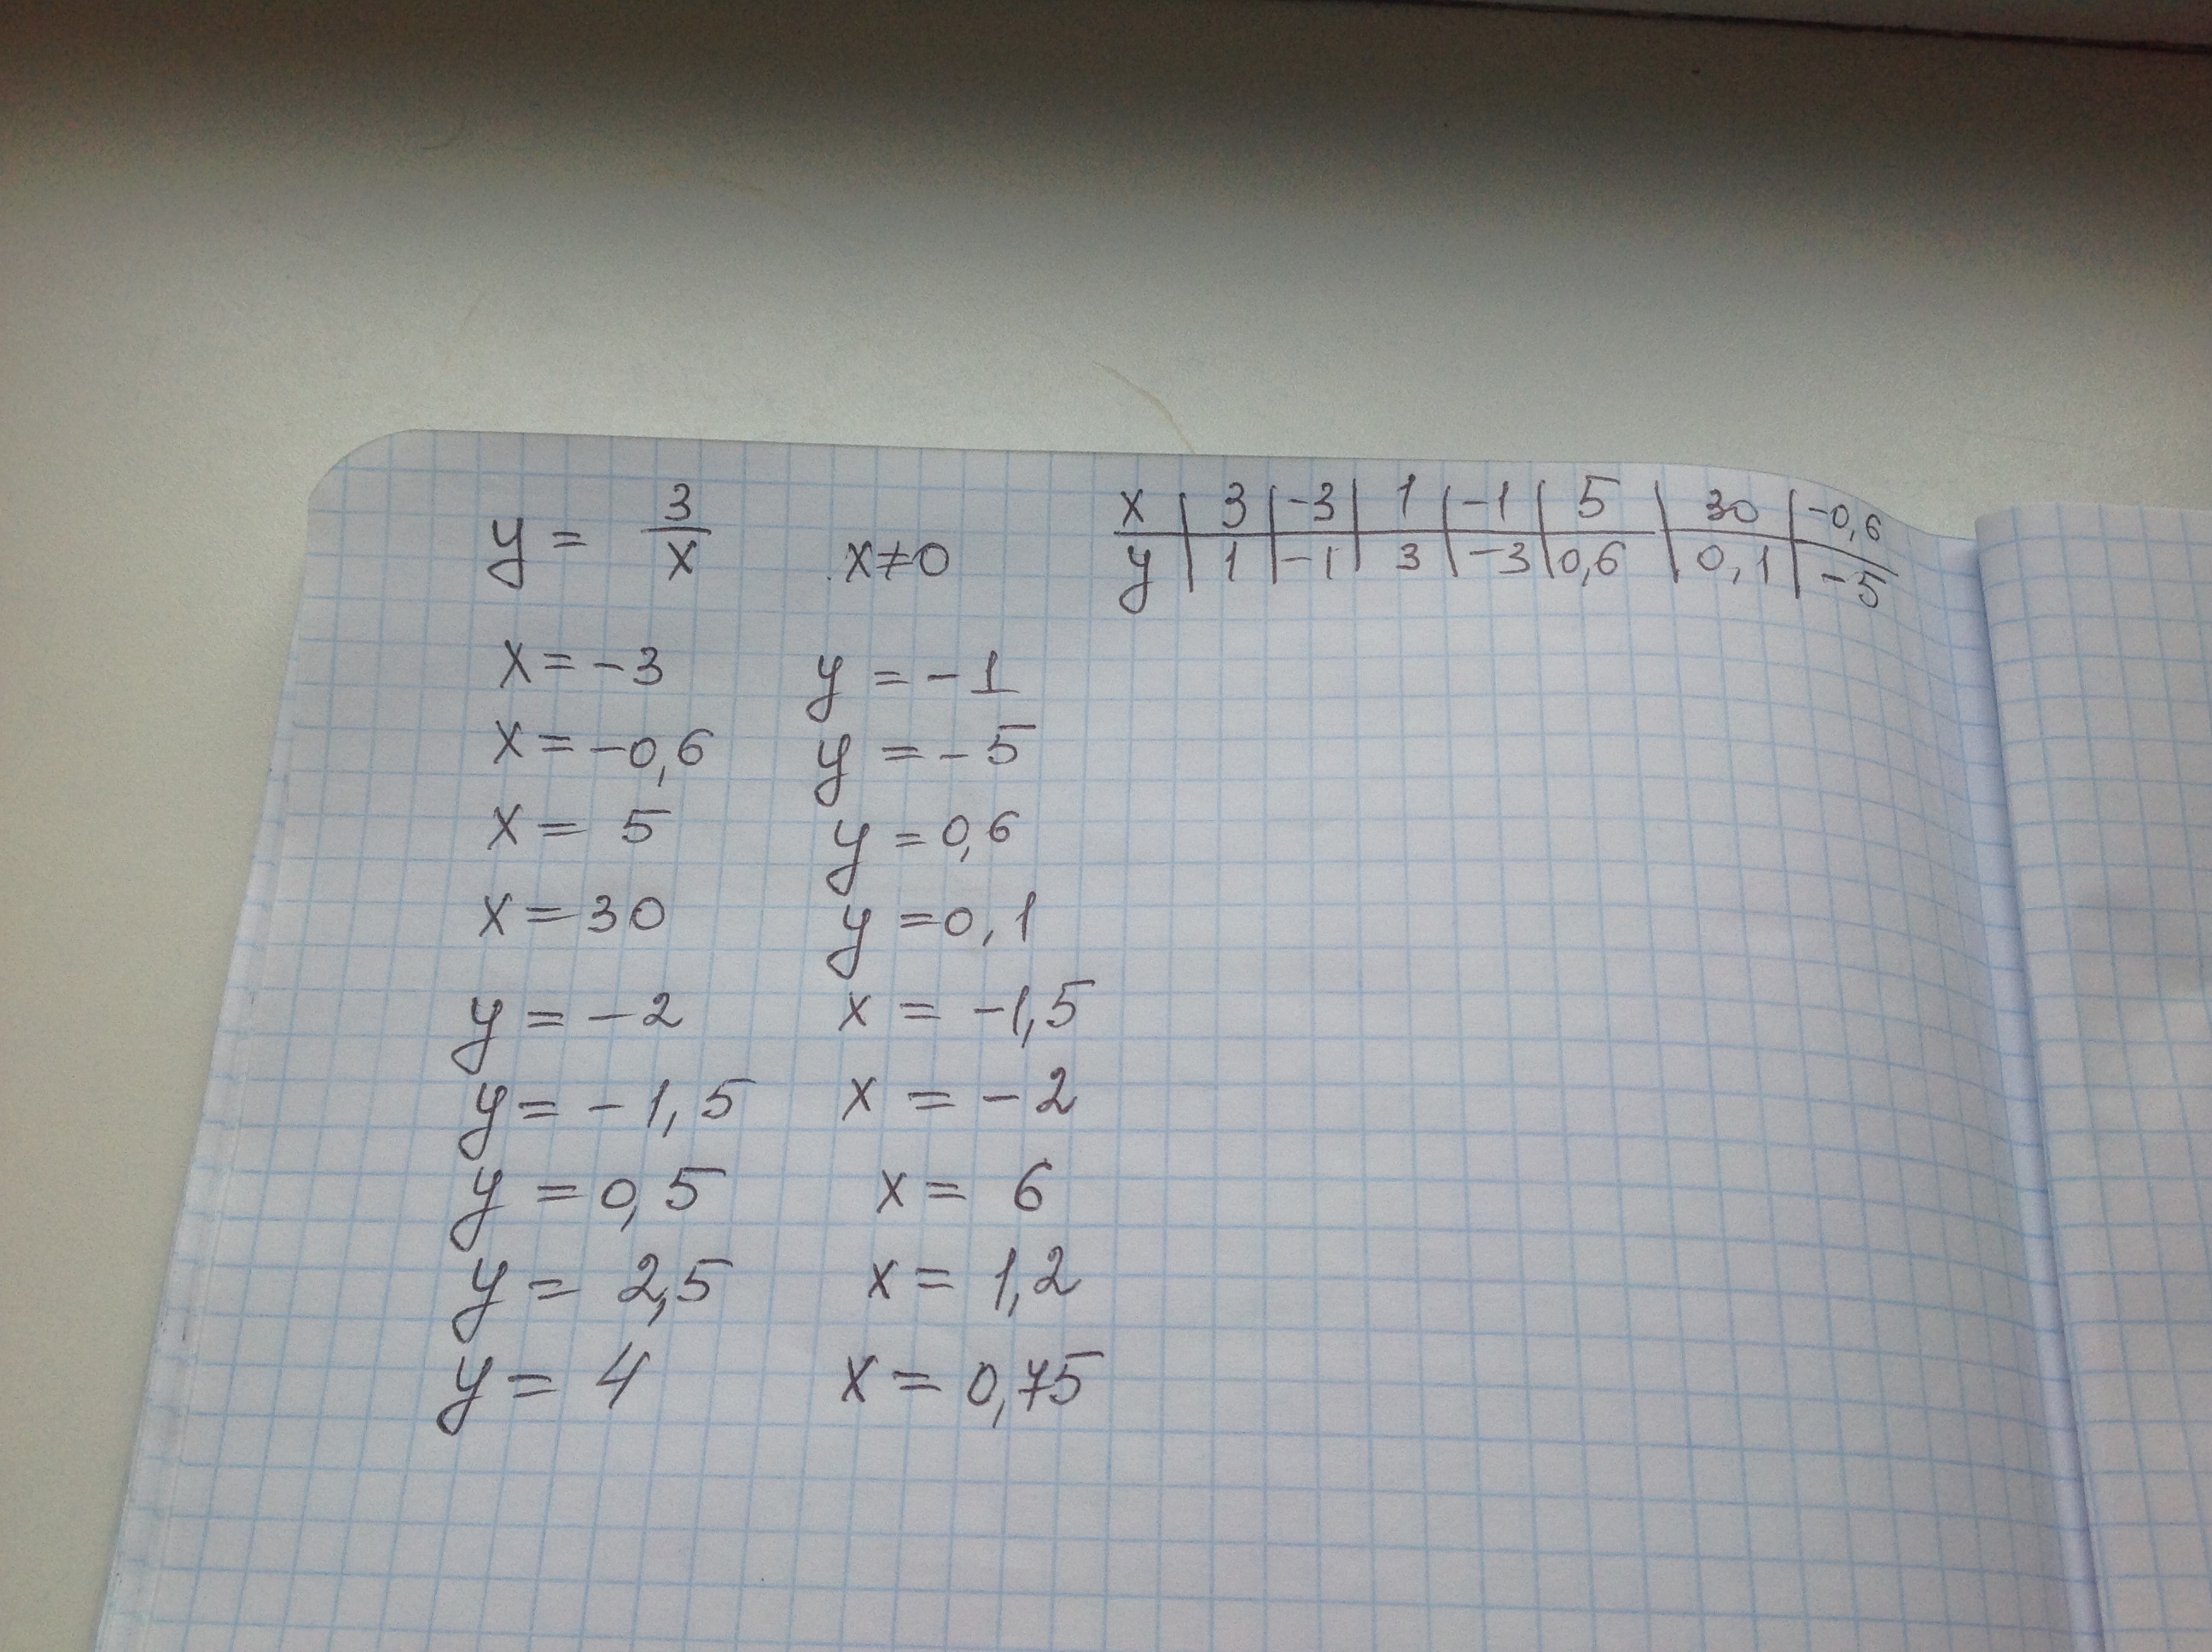 y = 3/x   x≠0
x | 3 | -3 | 1 | -1 | 5 | 30 | -0,6
y | 1 | -1 | 3 | -3 | 0,6 | 0,1 | -5
x = -3   y = -1
x = -0,6   y = -5
x = 5   y = 0,6
x = 30   y = 0,1
y = -2   x = -1,5
y = -1,5   x = -2
y = 0,5   x = 6
y = 2,5   x = 1,2
y = 4   x = 0,75